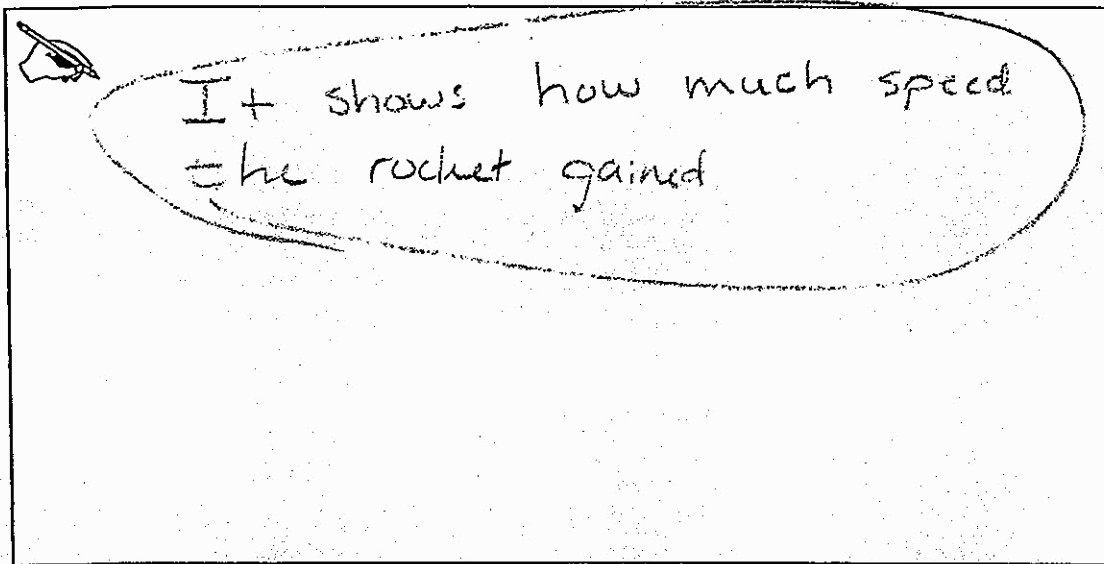 It shows how much speed
the rocket gained